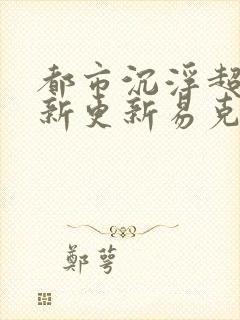 都市沉浮超
新更新易克
鄭萼